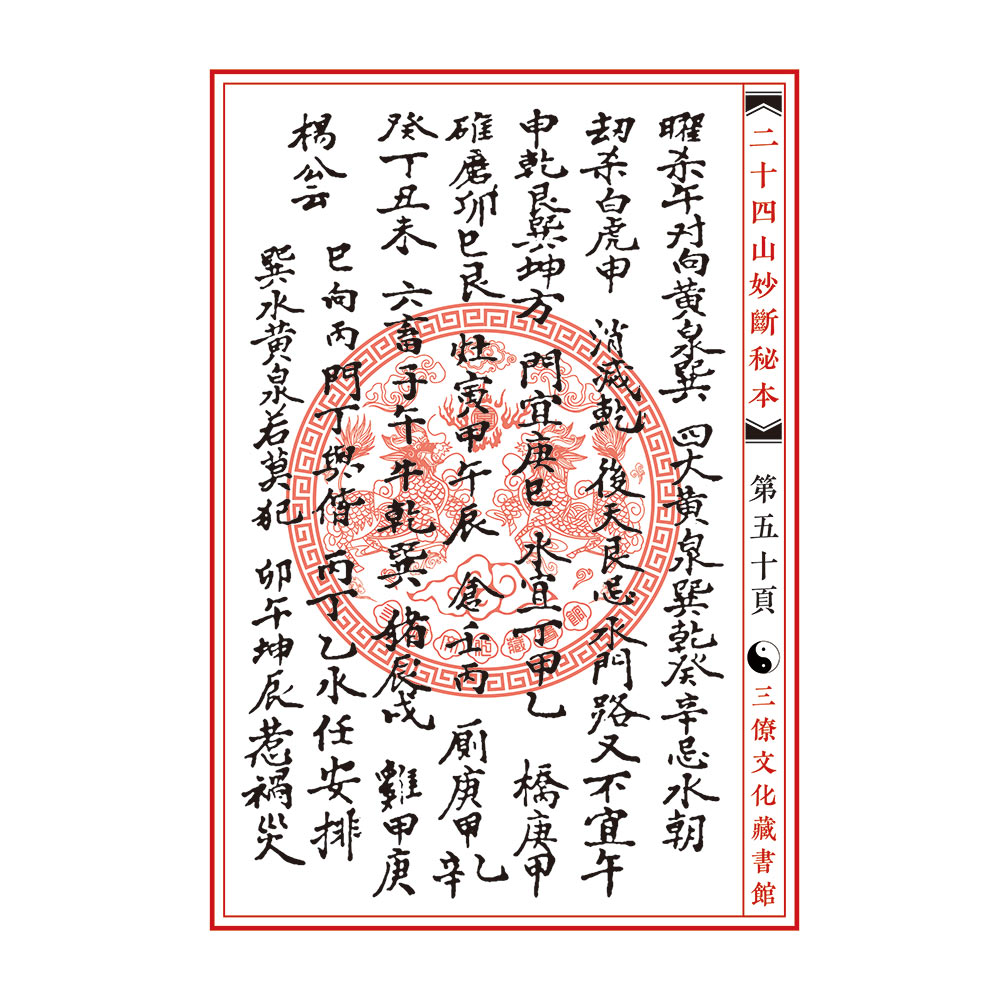 《二十四山妙斷秘本》 第五十頁 三僚文化藏書館
曜杀午对向黄泉巽 四大黄泉巽乾癸辛忌水朝
刧杀白虎申 消滅乾 後天艮忌水門路又不宜午
申乾艮巽坤方 門宜庚巳 水宜丁甲乙 橋庚甲
碓磨卯巳艮 灶寅甲午辰 倉壬丙 厠庚甲乙辛
癸丁丑未 六畜子午牛乾巽 猪辰戌 雞甲庚
楊公云
巳向丙門丁與 丙丁乙水任安排
巽水黄泉若莫犯 卯午坤辰惹禍災
藏書館